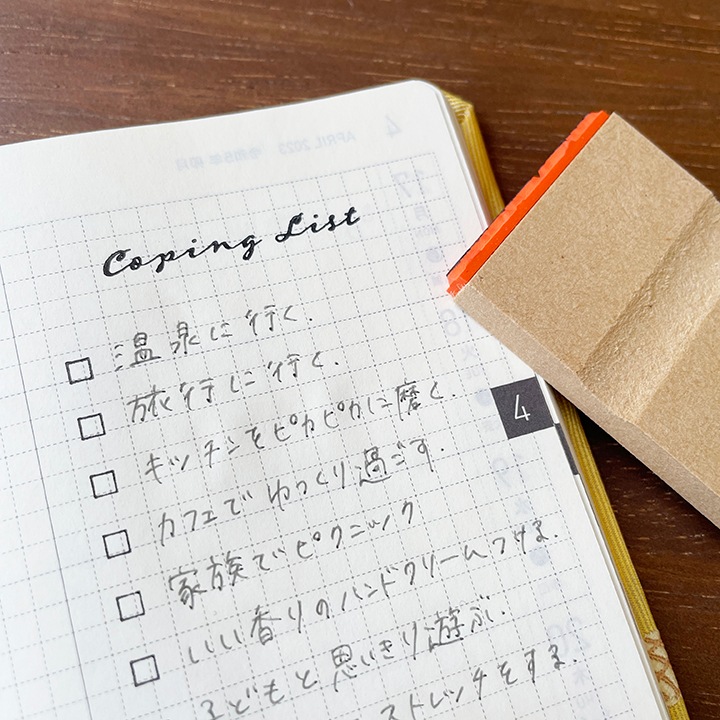 4 APRIL 2023 令和5年 卯月
17
Coping List
温泉に行く.
旅行に行く.
キッチンをピカピカに磨く.
カフェでゆっくり過ごす.
家族でピクニック
いい香りのハンドクリームつける.
子どもと思いきり遊ぶ.
ストレッチをする.
4